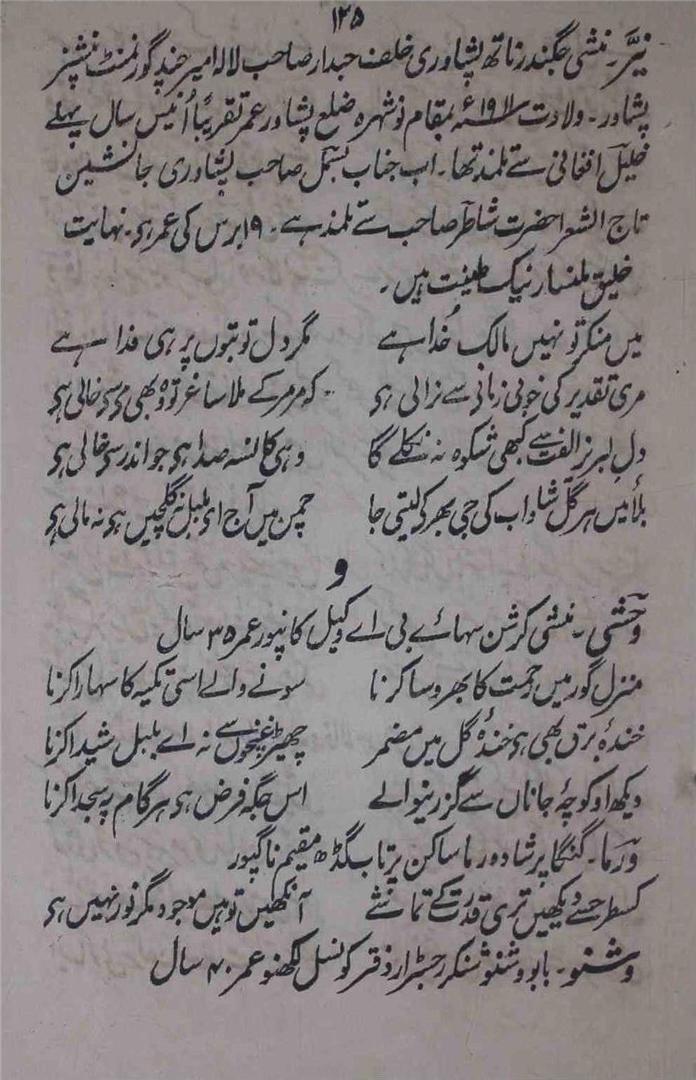 ۱۲۵
نیّر۔ منشی جگندر ناتھ پشاوری خلف حبدار صاحب لالہ امیر چند گورنمنٹ پنشنر
پشاور۔ ولادت ۱۹۱۱ء بمقام نوشہرہ ضلع پشاور عمر تقریباً اُنیس سال پہلے
خلیل افغانی سے تلمذ تھا۔ اب جناب بسمل صاحب پشاوری جانشین
تاج الشعرا حضرت شاطر صاحب سے تلمذ ہے۔ ۱۹ برس کی عمر ہی۔ نہایت
خلیق ملنسار نیک طینت ہیں۔
میں منکر تو نہیں مالک خُدا ہے مگر دل تو بتوں پر ہی فدا ہے
مری تقدیر کی خوبی زمانی سے نرالی ہی کہ مر مر کے ملا ساغر تو وہ بھی مے سے خالی ہی
دل لبریز الفت سے کبھی شکوہ نہ نکلے گا وہی کاسہ صدا ہی جو اندر سے خالی ہی
بلائیں ہر گل شاداب کی جی بھر کے لیتی جا چمن میں آج ای بلبل نہ گلچیں ہی نہ مالی ہی
و
وحشی۔ منشی کرشن سہائے بی اے وکیل کانپور عمر ۳۵ سال
منزل گور میں رحمت کا بھروسا کرنا سونے والے اسی تکیہ کا سہارا کرنا
خندۂ برق بھی ہی خندۂ گل میں مضمر چھیڑ غنچوں سے نہ اے بلبل شیدا کرنا
دیکھ او کوچۂ جاناں سے گزرنیوالے اس جگہ فرض ہی ہر گام پہ سجدا کرنا
ورما۔ گنگا پرشاد ورما ساکن پرتاب گڈھ مقیم ناگپور
کسطرح سے دیکھیں تری قدرت کے تماشے آنکھیں تو ہیں موجود مگر نور نہیں ہی
وشنو۔ بابو وشنو شنکر رجسٹرار دفتر کونسل لکھنو عمر ۴۰ سال